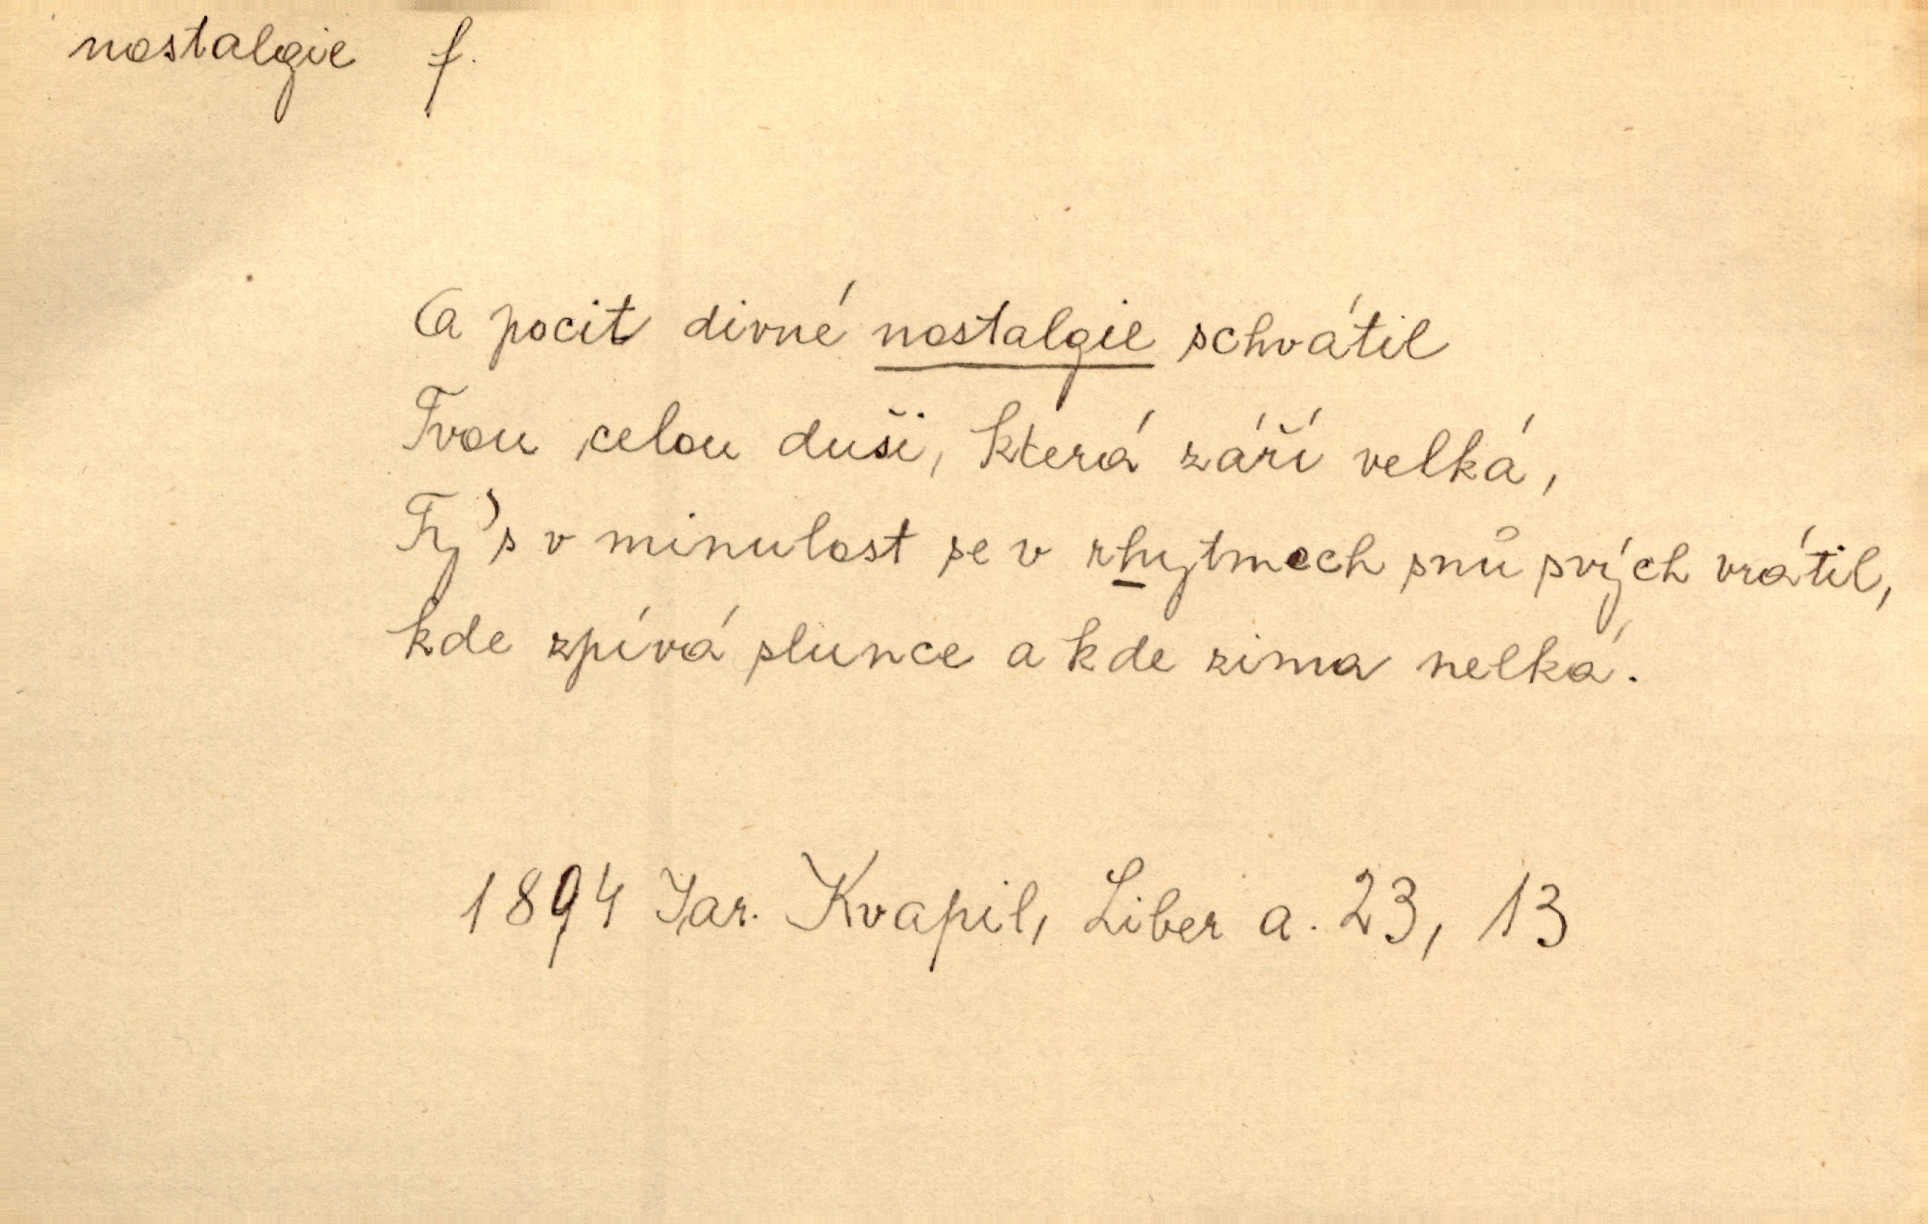 nostalgie f.
A pocit divné nostalgie schvátil
Tvou celou duši, která září velká,
Ty's v minulost se v rhytmech snů svých vrátil,
kde zpívá slunce a kde zima nelká.
1894 Jar. Kvapil, Liber a. 23, 13